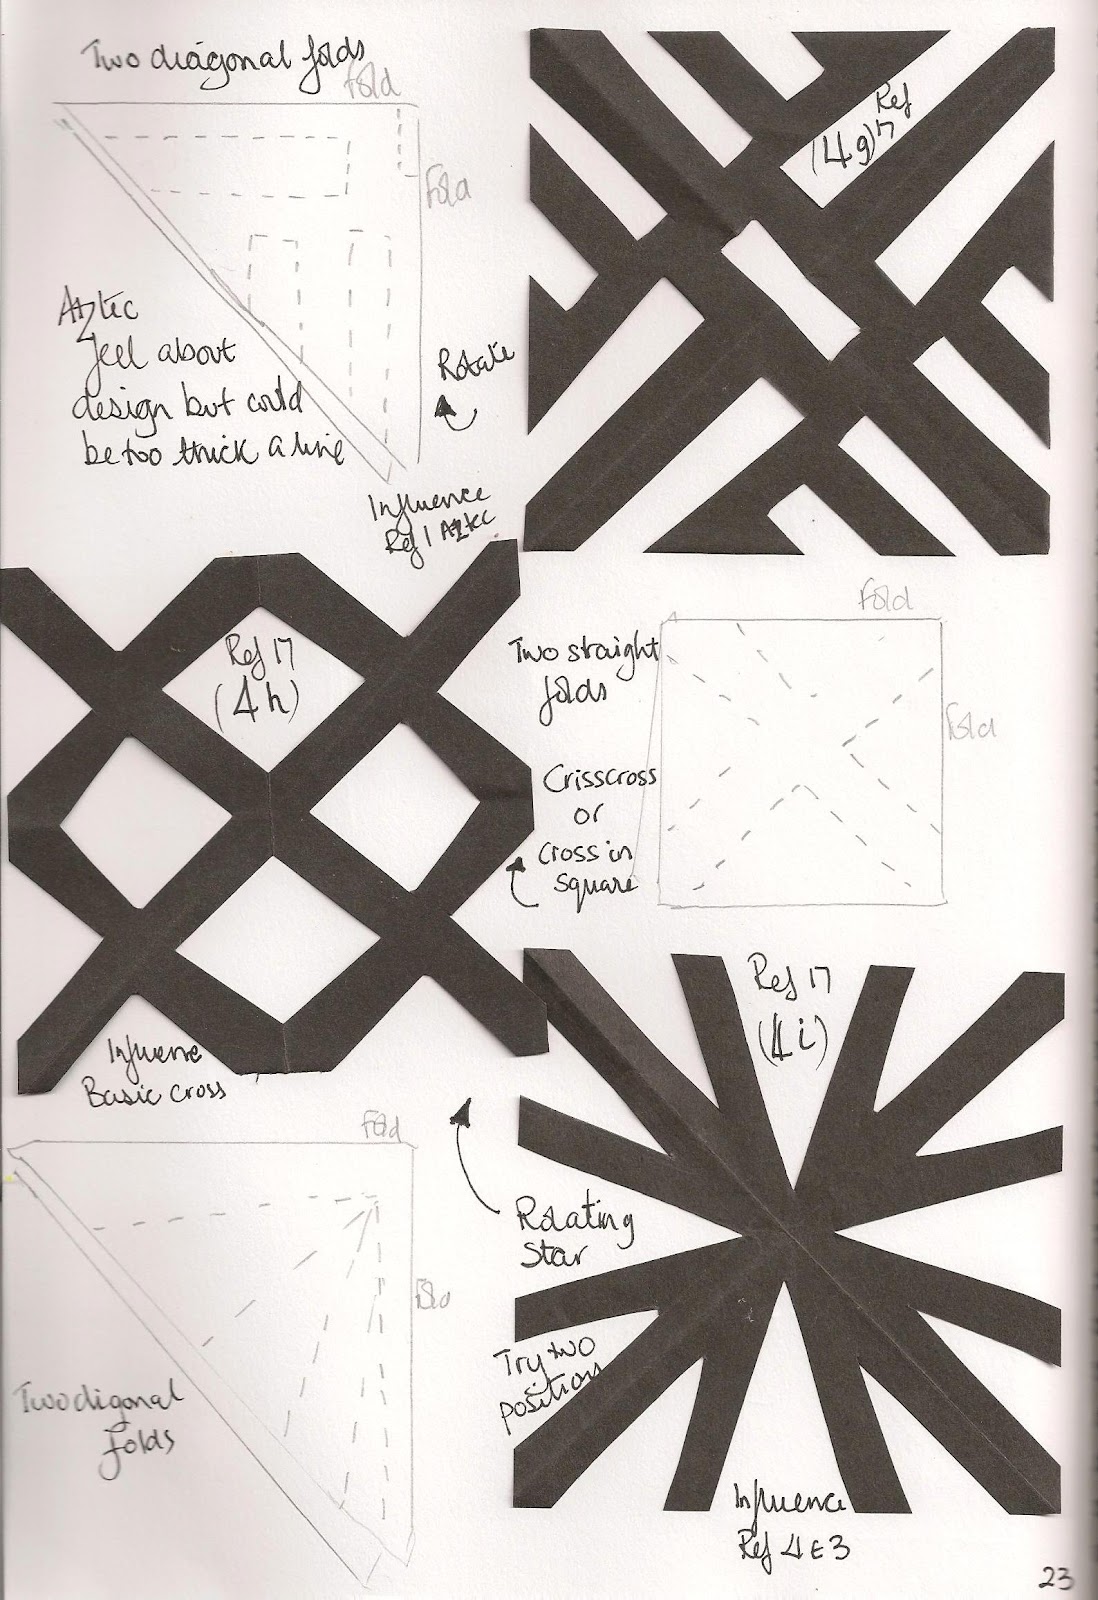 Two diagonal folds
Fold
Fold
Ref
17
(4g)
Aztec
feel about
design but could
be too thick a line
Rotate
Influence
Ref 1 Aztec
Ref 17
(4h)
Two straight
folds
Fold
Fold
Crisscross
or
Cross in
square
Influence
Basic cross
Ref 17
(4i)
Fold
Fold
Rotating
Star
Try two
positions
Two digonal
folds
Influence
Ref 4E3
23